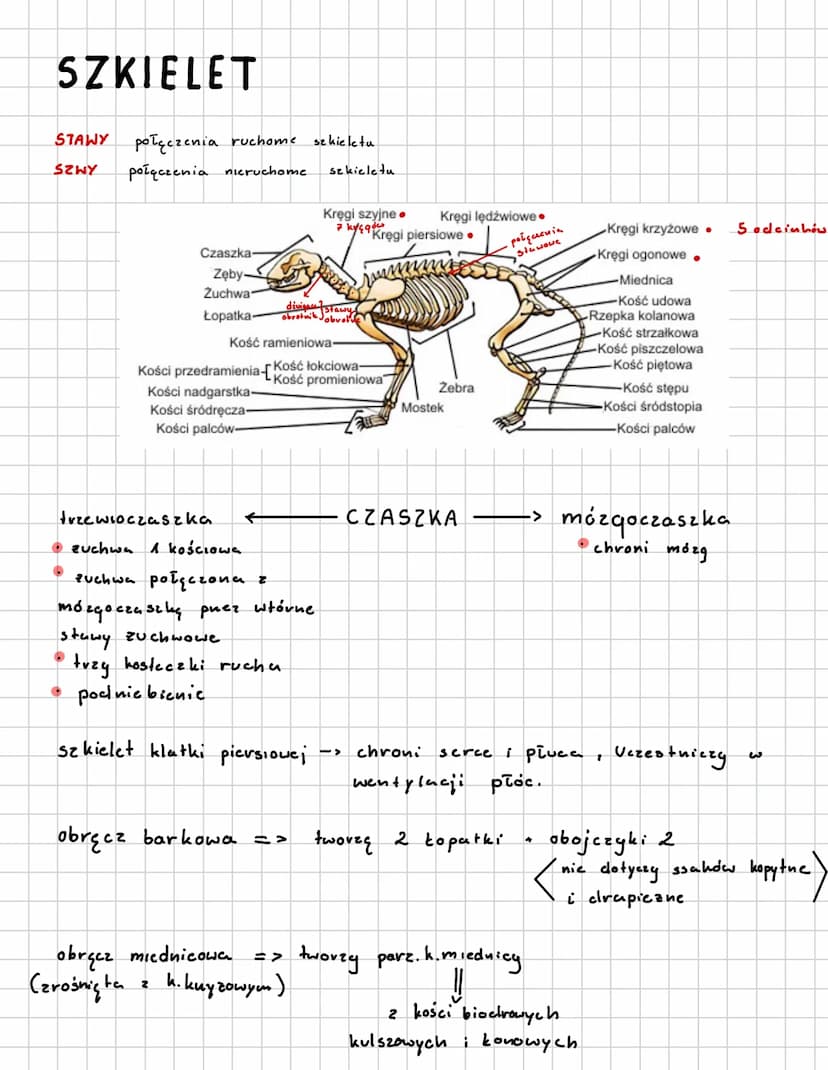 SZKIELET
STAWY połączenia ruchome szkieletu
SZWY połączenia nieruchome szkieletu
Kręgi szyjne
7 kręgów
Kręgi lędźwiowe
Kręgi piersiowe
połączenia
stawowe
Kręgi krzyżowe
5 odcinków
Kręgi ogonowe
Czaszka
Zęby
Żuchwa
Łopatka
stawy
obrotnik
Kość ramieniowa
Kości przedramienia
Kość łokciowa
Kość promieniowa
Kości nadgarstka
Kości śródręcza
Kości palców
Mostek
Żebra
Miednica
Kość udowa
Rzepka kolanowa
Kość strzałkowa
Kość piszczelowa
Kość piętowa
Kość stępu
Kości śródstopia
Kości palców
trzewioczaszka ← CZASZKA → mózgoczaszka
żuchwa 1 kościowa
chroni mózg
żuchwa połączona z
mózgoczaszką przez wtórne
stawy żuchwowe
trzy kosteczki rucha
podniebienie
szkielet klatki piersiowej -> chroni serce i płuca, Uczestniczy w
wentylacji płóc.
obręcz barkowa => tworzą 2 łopatki + obojczyki 2
nie dotyczy ssaków kopytne
i drapieżne
obręcz miednicowa => tworzy parz. k. miednicy
(zrośnięta z k. krzyżowym)
z kości biodrowych
kulszowych i łonowych